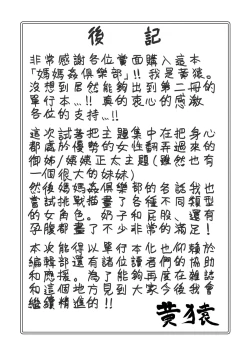 後記
非常感謝各位當面購入這本
「媽媽姦俱樂部」!! 我是黄猿。
沒想到居然能夠出到第二冊的
單行本…!! 真的衷心的感激
各位的支持…!!
這次試著把主題集中在把身心
都處於優勢的女性翻弄過來的
御姊/嬸嬸正太主題(雖然也有
一個很大的妹妹)
然後媽媽姦俱樂部的各話我也
嘗試挑戰描畫了各種不同類型
的女角色。奶子和屁股、還有
孕腹都畫了不少非常的滿足!
本次能得以單行本化也仰賴於
編輯部還有諸位讀者們的協助
和應援。為了能夠再度在雜誌
和這個地方見到大家今後我會
繼續精進的!!
黄猿